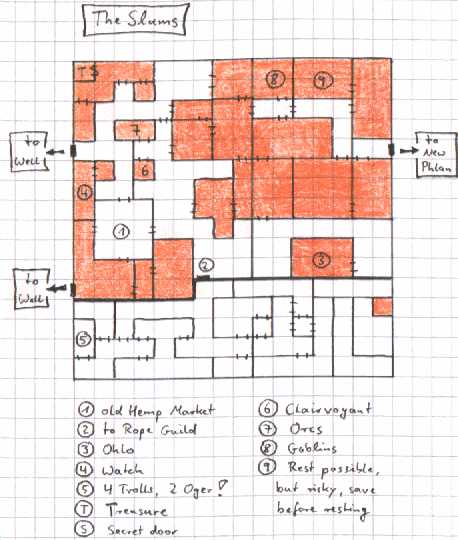 The Slums
TS
8
9
7
to
Well
to
New
Phlan
6
4
1
2
3
to
Well
5
1 old Hemp Market
2 to Rope Guild
3 Ohlo
4 Watch
5 4 Trolls, 2 Oger!
T Treasure
S Secret door
6 Clairvoyant
7 Orcs
8 Goblins
9 Rest possible,
but risky, save
before resting